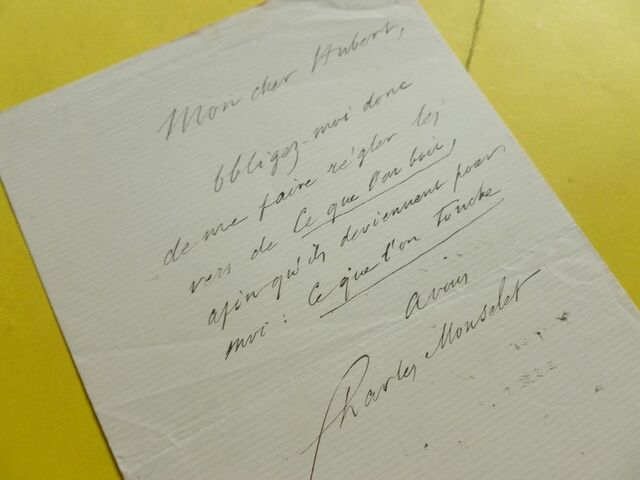 Mon cher Hubert,
Obligez-moi donc
de me faire régler les
vers de Ce que l'on boit,
afin qu'ils deviennent pour
moi : Ce que l'on touche
à vous
Charles Monselet